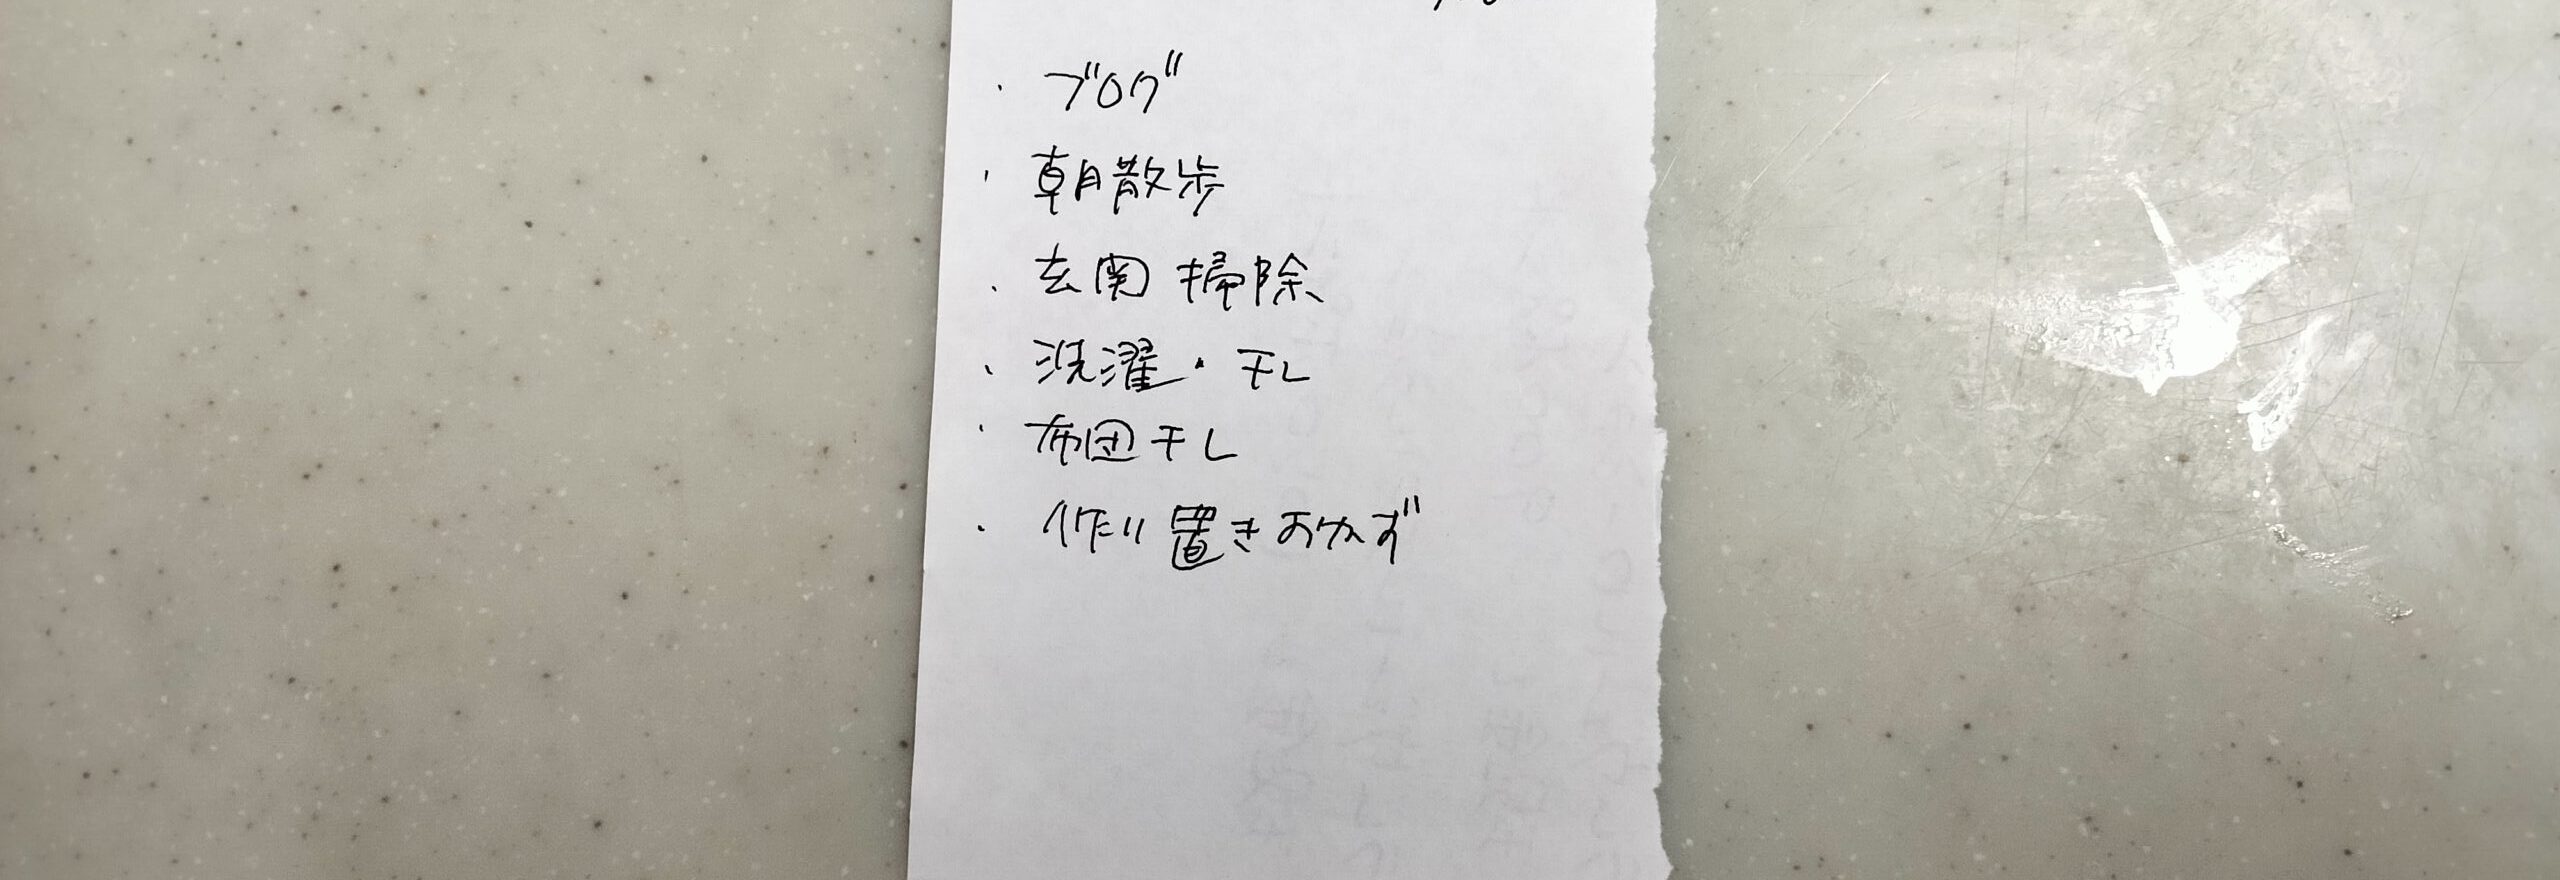 ・ブログ
・朝散歩
・玄関掃除
・洗濯・干し
・布団干し
・作り置きおかず